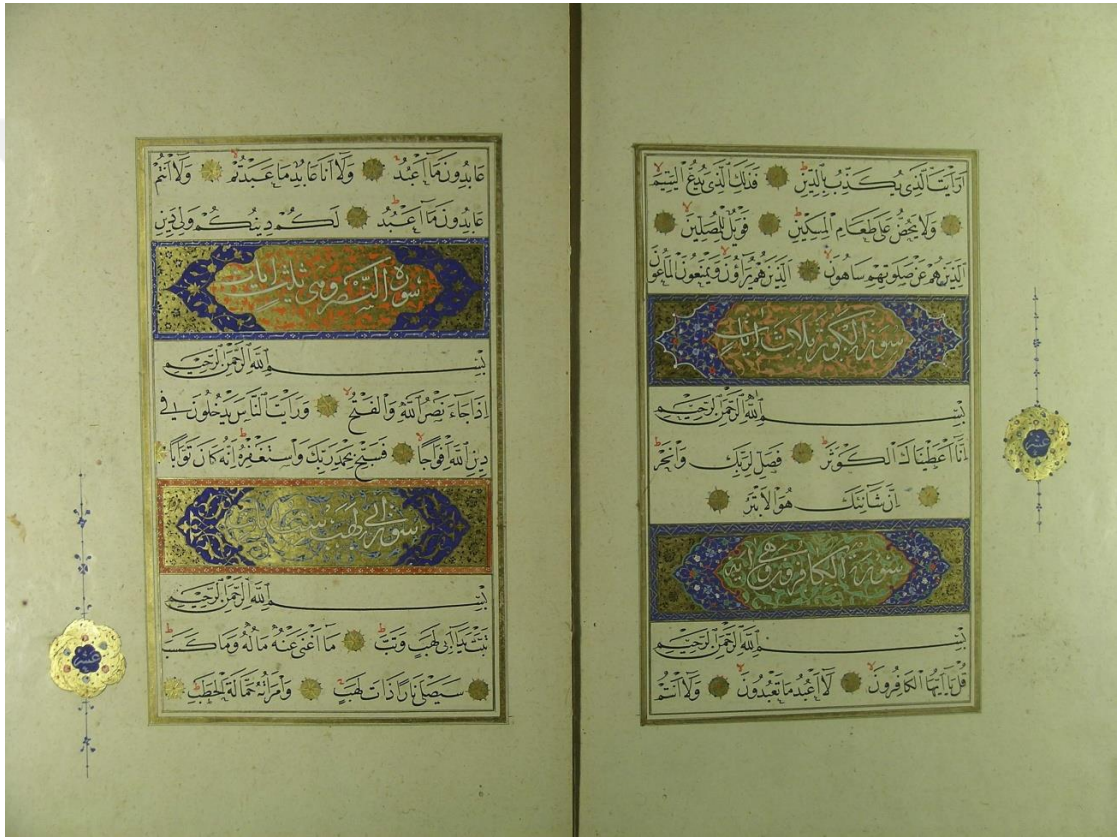 اَرَاَيْتَ الَّذِى يُكَذِّبُ بِالدِّينِ فَذٰلِكَ الَّذِى يَدُعُّ الْيَتِيمَ
وَلَا يَحُضُّ عَلٰى طَعَامِ الْمِسْكِينِ فَوَيْلٌ لِلْمُصَلِّينَ
اَلَّذِينَ هُمْ عَنْ صَلٰوتِهِمْ سَاهُونَ اَلَّذِينَ هُمْ يُرَاؤُنَ وَيَمْنَعُونَ الْمَاعُونَ
سورة الكوثر ثلاث ايات
بِسْمِ اللّٰهِ الرَّحْمٰنِ الرَّحِيمِ
اِنَّا اَعْطَيْنَاكَ الْكَوْثَرَ فَصَلِّ لِرَبِّكَ وَانْحَرْ
اِنَّ شَانِئَكَ هُوَ الْاَبْتَرُ
سورة الكافرون اية
بِسْمِ اللّٰهِ الرَّحْمٰنِ الرَّحِيمِ
قُلْ يَا اَيُّهَا الْكَافِرُونَ لَا اَعْبُدُ مَا تَعْبُدُونَ وَلَا اَنْتُمْ
عشر
عَابِدُونَ مَا اَعْبُدُ وَلَا اَنَا عَابِدٌ مَا عَبَدْتُمْ وَلَا اَنْتُمْ
عَابِدُونَ مَا اَعْبُدُ لَكُمْ دِينُكُمْ وَلِىَ دِينِ
سورة النصر وهى ثلث ايات
بِسْمِ اللّٰهِ الرَّحْمٰنِ الرَّحِيمِ
اِذَا جَاءَ نَصْرُ اللّٰهِ وَالْفَتْحُ وَرَاَيْتَ النَّاسَ يَدْخُلُونَ فِى
دِينِ اللّٰهِ اَفْوَاجًا فَسَبِّحْ بِحَمْدِ رَبِّكَ وَاسْتَغْفِرْهُ اِنَّهُ كَانَ تَوَّابًا
سورة ابى لهب
بِسْمِ اللّٰهِ الرَّحْمٰنِ الرَّحِيمِ
تَبَّتْ يَدَا اَبِى لَهَبٍ وَتَبَّ مَا اَغْنٰى عَنْهُ مَالُهُ وَمَا كَسَبَ
سَيَصْلٰى نَارًا ذَاتَ لَهَبٍ وَامْرَاَتُهُ حَمَّالَةَ الْحَطَبِ
عشر